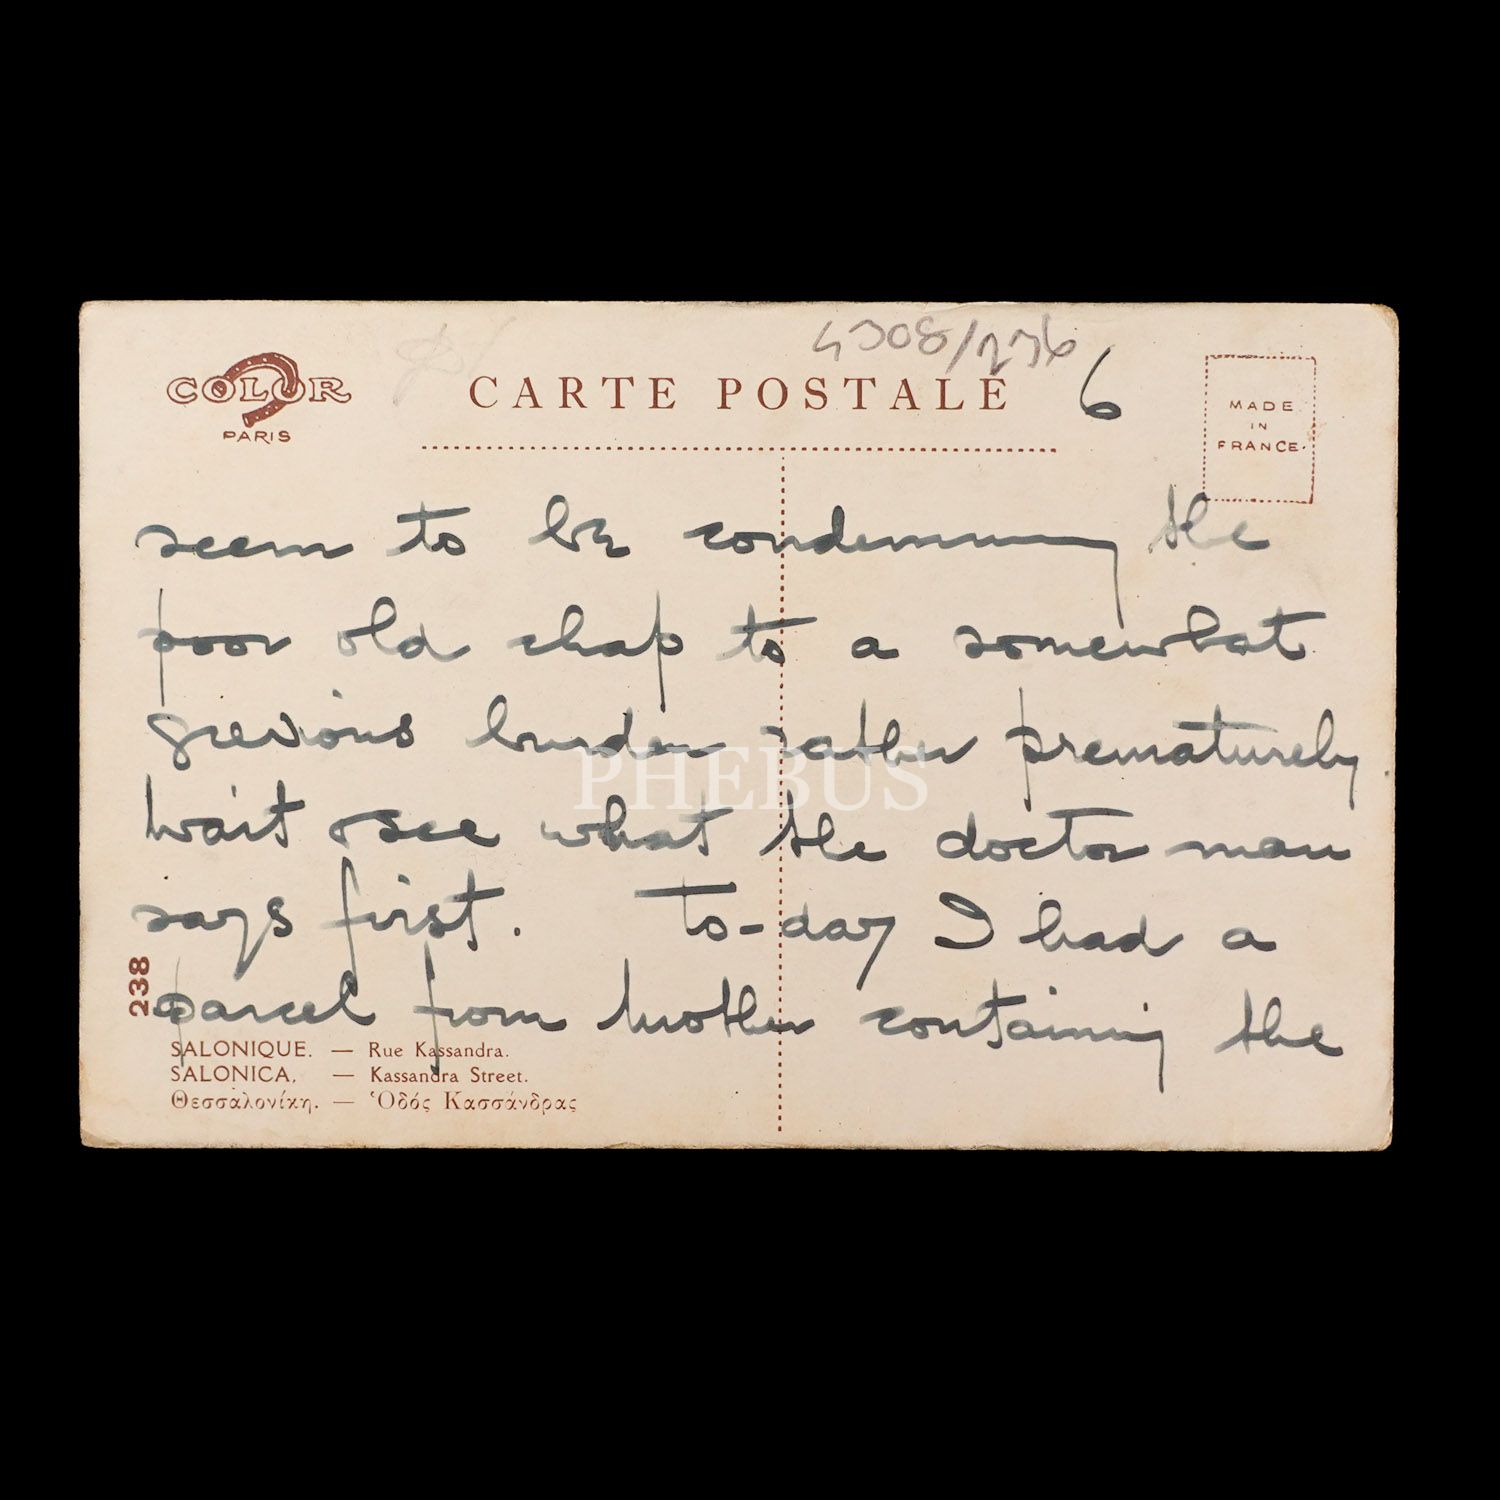 4308/236
COLOR
PARIS
CARTE POSTALE
6
MADE
IN
FRANCE
seem to be condemning the
poor old chap to a somewhat
grevious burden rather prematurely
wait & see what the doctor man
says first. To-day I had a
parcel from mother containing the
238
SALONIQUE. — Rue Kassandra.
SALONICA. — Kassandra Street.
Θεσσαλονίκη. — Ὁδός Κασσάνδρας
PHEBUS